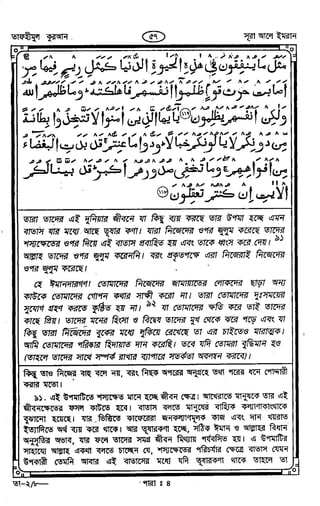 তাফহীমুল কুরআন
৫৭
সূরা আলে ইমরান
مَثَلُ مَا يُنْفِقُونَ فِي هٰذِهِ الْحَيٰوةِ الدُّنْيَا كَمَثَلِ رِيحٍ فِيهَا صِرٌّ
أَصَابَتْ حَرْثَ قَوْمٍ ظَلَمُوا أَنْفُسَهُمْ فَأَهْلَكَتْهُ وَمَا ظَلَمَهُمُ اللّٰهُ
وَلٰكِنْ أَنْفُسَهُمْ يَظْلِمُونَ ﴿١١٧﴾ يٰأَيُّهَا الَّذِينَ اٰمَنُوا لَا تَتَّخِذُوا بِطَانَةً
مِنْ دُونِكُمْ لَا يَأْلُونَكُمْ خَبَالًا وَدُّوا مَا عَنِتُّمْ قَدْ بَدَتِ الْبَغْضَاءُ
مِنْ أَفْوَاهِهِمْ وَمَا تُخْفِي صُدُورُهُمْ أَكْبَرُ قَدْ بَيَّنَّا لَكُمُ
الْاٰيٰتِ إِنْ كُنْتُمْ تَعْقِلُونَ ﴿١١٨﴾
তারা তাদের এই দুনিয়ার জীবনে যা কিছু ব্যয় করছে তার উপমা হচ্ছে এমন
বাতাস যার মধ্যে আছে তুষার কণা। যারা নিজেদের ওপর জুলুম করেছে তাদের
শস্যক্ষেতের ওপর দিয়ে এই বাতাস প্রবাহিত হয় এবং তাকে ধ্বংস করে দেয়।৯১
আল্লাহ তাদের ওপর জুলুম করেননি। বরং প্রকৃতপক্ষে এরা নিজেরাই নিজেদের
ওপর জুলুম করেছে।
হে ঈমানদারগণ! তোমাদের নিজেদের জামায়াতের লোকদের ছাড়া অন্য
কাউকে তোমাদের গোপন কথার সাক্ষী করো না। তারা তোমাদের দুঃসময়ের
সুযোগ গ্রহণ করতে কুণ্ঠিত হয় না।৯২ যা তোমাদের ক্ষতি করে তাই তাদের
কাছে প্রিয়। তাদের মনের হিংসা ও বিদ্বেষ তাদের মুখ থেকে ঝরে পড়ে এবং যা
কিছু তারা নিজেদের বুকের মধ্যে লুকিয়ে রেখেছে তা এর চাইতেও মারাত্মক।
আমি তোমাদের পরিষ্কার হিদায়াত দান করেছি। তবে যদি তোমরা বুদ্ধিমান হও
(তাহলে তাদের সাথে সম্পর্ক রাখার ব্যাপারে সতর্কতা অবলম্বন করবে)।
কিছু তাও নিজের বাহু বলে নয়, বরং নিছক অপরের অনুগ্রহে তথা পরের ধনে পোদ্দারী
করার মতো।
৯১. এই উপমাটিতে শস্যক্ষেত মানে হচ্ছে জীবন ক্ষেত্র। আখেরাতে মানুষকে তার এই
জীবনক্ষেতের ফসল কাটতে হবে। বাতাস বলতে মানুষের বাহ্যিক কল্যাণাকাংখাকে
বুঝানো হয়েছে। যার ভিত্তিতে কাফেররা জনকল্যাণমূলক কাজ এবং দান খয়রাত
ইত্যাদিতে অর্থ ব্যয় করে থাকে। আর তুষারকণা হচ্ছে, সঠিক ঈমান ও আল্লাহর বিধান
অনুসৃতির অভাব, যার ফলে তাদের সমগ্র জীবন মিথ্যায় পর্যবসিত হয়। এ উপমাটির
সাহায্যে আল্লাহ একথা বলতে চাচ্ছেন যে, শস্যক্ষেতের পরিচর্যার ক্ষেত্রে বাতাস যেমন
উপকারী তেমনি আবার এই বাতাসের মধ্যে যদি তুষারকণা থাকে তাহলে তা
তা-২/৮—
পারা : ৪